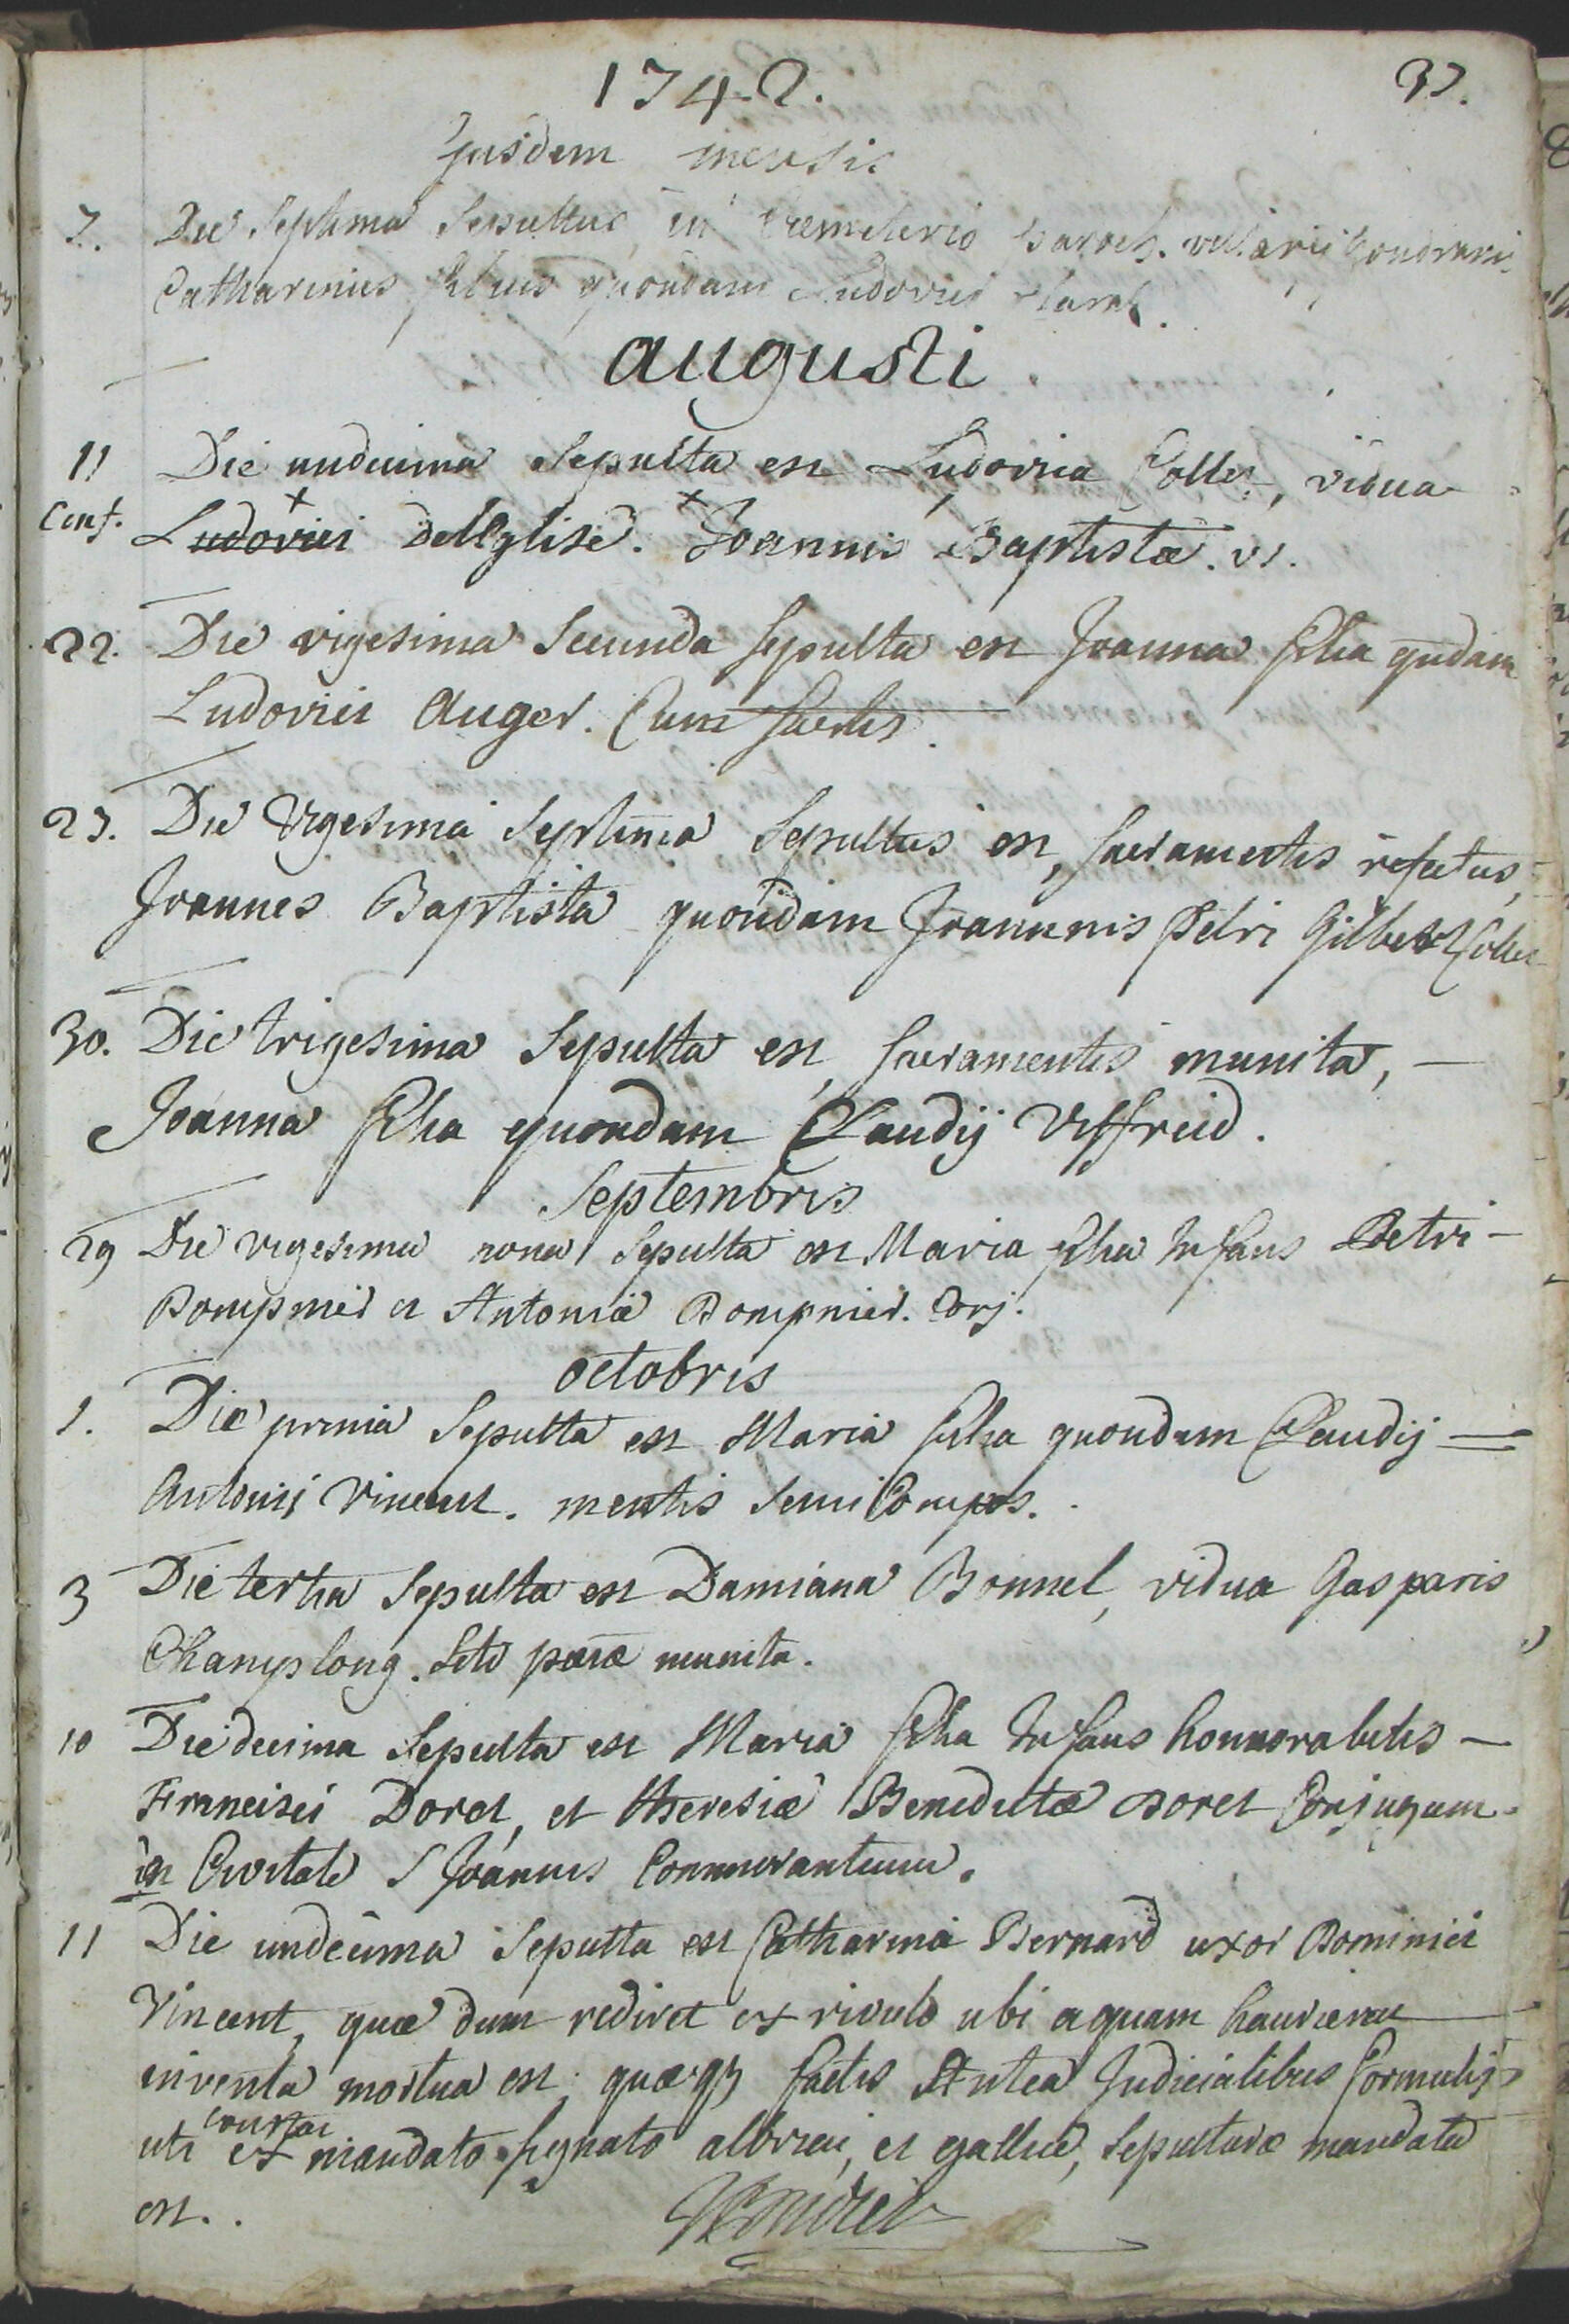 1742. 37.
Ejusdem mensis
7. Die Septima Sepultus in Cemeterio paroch. villarij Gondrani
Catharinus filius quondam Ludovici
augusti
11 Die undecima Sepulta est Ludovica Collet, vidua
Conf. Ludovici dellEglise. Joannis Baptistæ. vs.
22. Die vigesima Secunda Sepulta est Joanna filia qudam
Ludovici Auger. Cum Sacrtis.
27. Die Vigesima Septima Sepultus est, Sacramentis refectus,
Joannes Baptista quondam Joannis Petri Gilbert Collet
30. Die trigesima Sepulta est Sacramentis munita, -
Joanna filia quondam Claudij Viffreid.
Septembris
29 Die vigesima nona Sepulta est Maria filia Infans Petri -
Dompnier et Antoniæ Dompnier. Conj.
octobris
1. Die prima Sepulta est Maria filia quondam Claudij =
Antonij Vincent. mentis Semi Compos.
3 Die tertia Sepulta est Damiana Bonnel, vidua Gasparis
Champlong. Sto pœnæ munita.
10 Die decima Sepulta est Maria filia Infans honnorabilis -
Francisci Doret, et theresiæ Benedictæ Doret Conjugum
in Civitate S Joannis Commorantium.
11 Die undecima Sepulta est Catharina Bernard uxor Dominici
Vincent, quæ dum rediret ex rivulo ubi aquam haurierat
inventa mortua est; quæqz factis Antea Judicialibus formulis
uti constat ex mandato Signato albrieu, et gallice, Sepulturæ mandata
est..